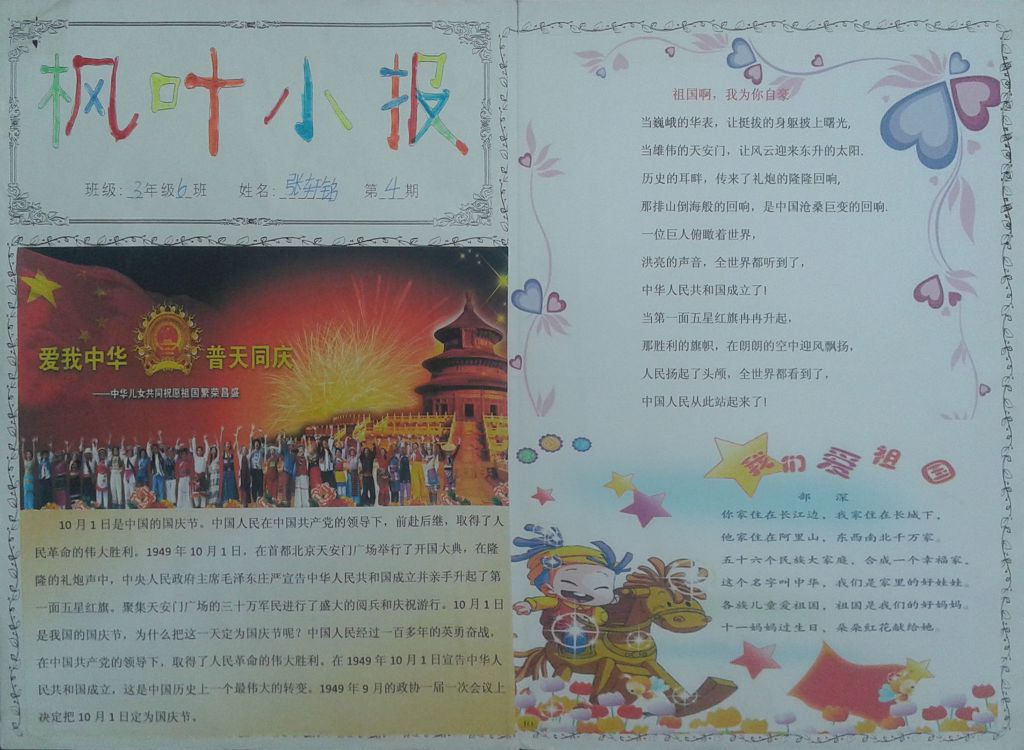 枫叶小报
班级：3年级6班 姓名：张轩铭 第4期
爱我中华 普天同庆
——中华儿女共同祝愿祖国繁荣昌盛
10月1日是中国的国庆节。中国人民在中国共产党的领导下，前赴后继，取得了人
民革命的伟大胜利。1949年10月1日，在首都北京天安门广场举行了开国大典，在隆
隆的礼炮声中，中央人民政府主席毛泽东庄严宣告中华人民共和国成立并亲手升起了第
一面五星红旗。聚集天安门广场的三十万军民进行了盛大的阅兵和庆祝游行。10月1日
是我国的国庆节，为什么把这一天定为国庆节呢？中国人民经过一百多年的英勇奋战，
在中国共产党的领导下，取得了人民革命的伟大胜利。在1949年10月1日宣告中华人
民共和国成立，这是中国历史上一个最伟大的转变。1949年9月的政协一届一次会议上
决定把10月1日定为国庆节。
祖国啊，我为你自豪
当巍峨的华表，让挺拔的身躯披上曙光,
当雄伟的天安门，让风云迎来东升的太阳.
历史的耳畔，传来了礼炮的隆隆回响,
那排山倒海般的回响，是中国沧桑巨变的回响.
一位巨人俯瞰着世界，
洪亮的声音，全世界都听到了，
中华人民共和国成立了!
当第一面五星红旗冉冉升起，
那胜利的旗帜，在朗朗的空中迎风飘扬，
人民扬起了头颅，全世界都看到了，
中国人民从此站起来了!
我们爱祖国
邹 深
你家住在长江边，我家住在长城下，
他家住在阿里山，东西南北千万家。
五十六个民族大家庭，合成一个幸福家，
这个名字叫中华，我们是家里的好娃娃。
各族儿童爱祖国，祖国是我们的好妈妈。
十一妈妈过生日，朵朵红花献给她。
10